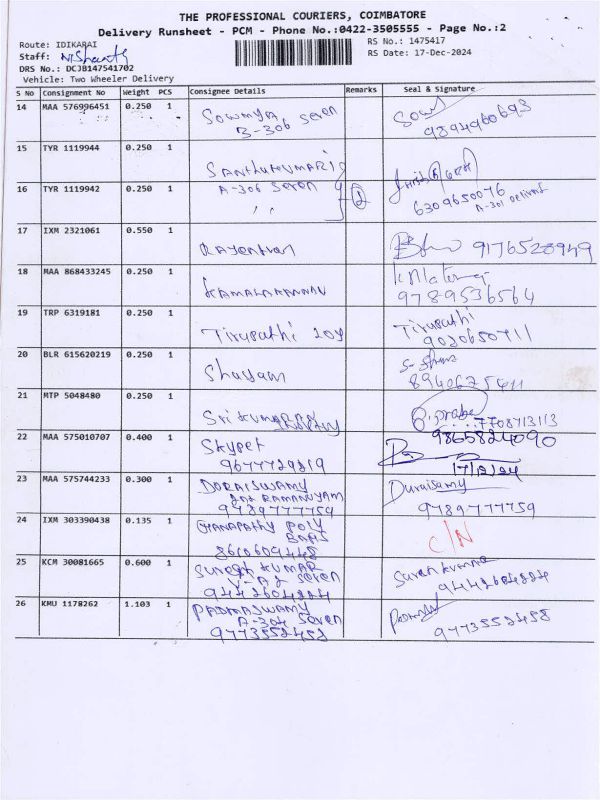 THE PROFESSIONAL COURIERS, COIMBATORE
Delivery Runsheet - PCM - Phone No.:0422-3505555 - Page No.:2
Route: IDIKARAI
RS No.: 1475417
Staff: Nishanth
RS Date: 17-Dec-2024
DRS No.: DCJB147541702
Vehicle: Two Wheeler Delivery
S No Consignment No Weight PCS Consignee Details Remarks Seal & Signature
14 MAA 576996451 0.250 1 Sowmya Seven
B-306
9894960693
15 TYR 1119944 0.250 1
Santhukumari
16 TYR 1119942 0.250 1 A-306 Seven 2
6309650076
A-301
17 IXM 2321061 0.550 1
9176528949
18 MAA 868433245 0.250 1
Kamalakannan
9789536564
19 TRP 6319181 0.250 1
Tirupathi 204 Tirupathi
9020650711
20 BLR 615620219 0.250 1
Shayam
21 MTP 5048480 0.250 1
Srikumaran
7708713113
22 MAA 575010707 0.400 1 9865824090
Skypet
9677729219 17/12/24
23 MAA 575744233 0.300 1 Doraiswamy Duraisamy
Ramanuyam
9789777759 9789777759
24 IXM 303390438 0.135 1 Ganapathy Poly
Bags C/N
8610609448
25 KCM 30081665 0.600 1 Suresh Kumar
Seven
26 KMU 1178262 1.103 1 Padmaswamy
A-304 Seven
9773552452 9773552458